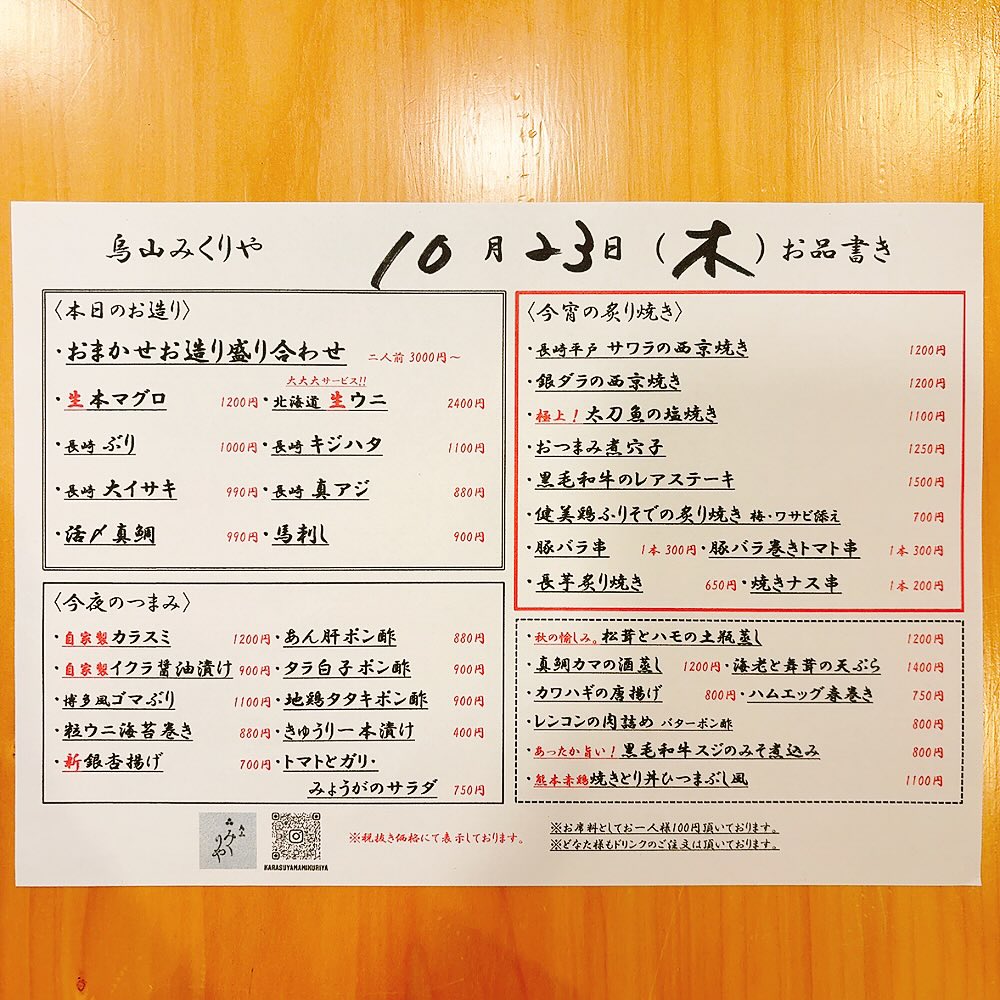 烏山みくりや 10月23日(木)お品書き
〈本日のお造り〉
・おまかせお造り盛り合わせ 二人前 3000円～
大大大サービス!!
・生本マグロ 1200円・北海道 生ウニ 2400円
・長崎 ぶり 1000円・長崎 キジハタ 1100円
・長崎 大イサキ 990円・長崎 真アジ 880円
・活〆真鯛 990円・馬刺し 900円
〈今夜のつまみ〉
・自家製カラスミ 1200円・あん肝ポン酢 880円
・自家製イクラ醤油漬け 900円・タラ白子ポン酢 900円
・博多風ゴマぶり 1100円・地鶏タタキポン酢 900円
・粒ウニ海苔巻き 880円・きゅうり一本漬け 400円
・新銀杏揚げ 700円・トマトとガリ・
みょうがのサラダ 750円
〈今宵の炙り焼き〉
・長崎平戸 サワラの西京焼き 1200円
・銀ダラの西京焼き 1200円
・極上！太刀魚の塩焼き 1100円
・おつまみ煮穴子 1250円
・黒毛和牛のレアステーキ 1500円
・健美鶏ふりそでの炙り焼き 梅・ワサビ添え 700円
・豚バラ串 1本300円・豚バラ巻きトマト串 1本300円
・長芋炙り焼き 650円・焼きナス串 1本200円
・秋の愉しみ。松茸とハモの土瓶蒸し 1200円
・真鯛カマの酒蒸し 1200円・海老と舞茸の天ぷら 1400円
・カワハギの唐揚げ 800円・ハムエッグ春巻き 750円
・レンコンの肉詰め バターポン酢 800円
・あったか旨い！黒毛和牛スジのみそ煮込み 800円
・熊本赤鶏焼きとり丼ひつまぶし風 1100円
烏山
みくりや
KARASUYAMAMIKURIYA
※税抜き価格にて表示しております。
※お席料としてお一人様100円頂いております。
※どなた様もドリンクのご注文は頂いております。